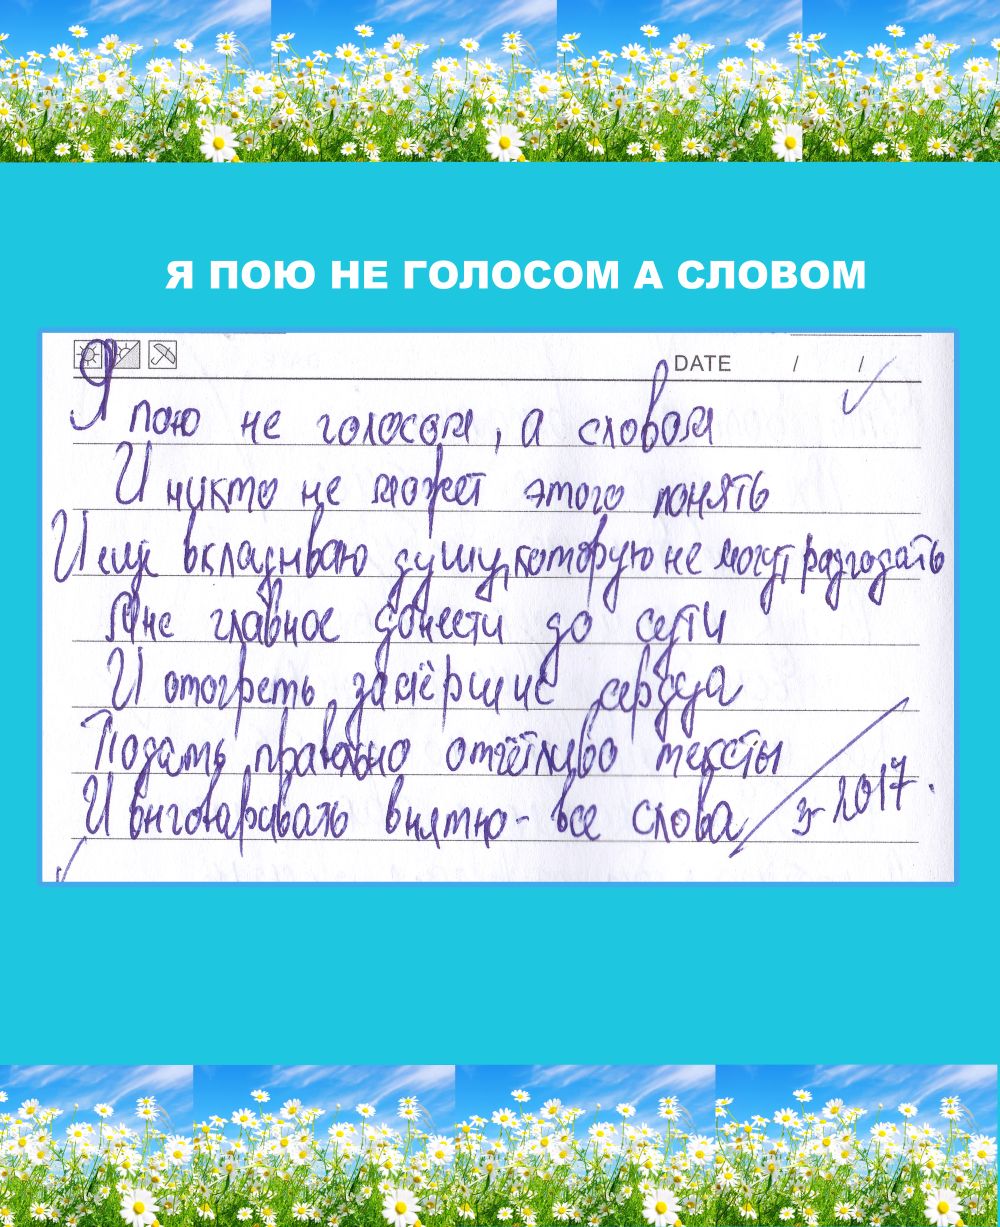 Я ПОЮ НЕ ГОЛОСОМ А СЛОВОМ
DATE / /
Я пою не голосом, а словом
И никто не может этого понять
И еще вкладываю душу, которую не могут разгадать
Мне главное донести до сути
И отогреть замёршие сердца
Подать правильно отчётливо тексты
И выговаривать внятно - все слова
2017.